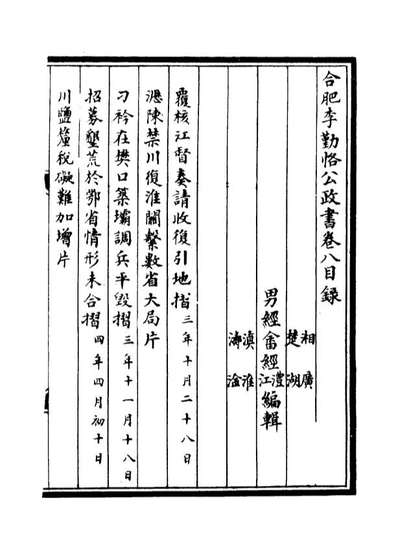 合肥李勤恪公政書卷八目錄
相廣
楚湖
男經畬經澧江編輯
滇淮
淦
覆核江督奏請收復引地摺三年十月二十八日
瀝陳禁川復淮關繫數省大局片
刁衿在樊口築壩調兵平毀摺三年十一月十八日
招募墾荒於鄂省情形未合摺四年四月初十日
川鹽釐稅礙難加增片